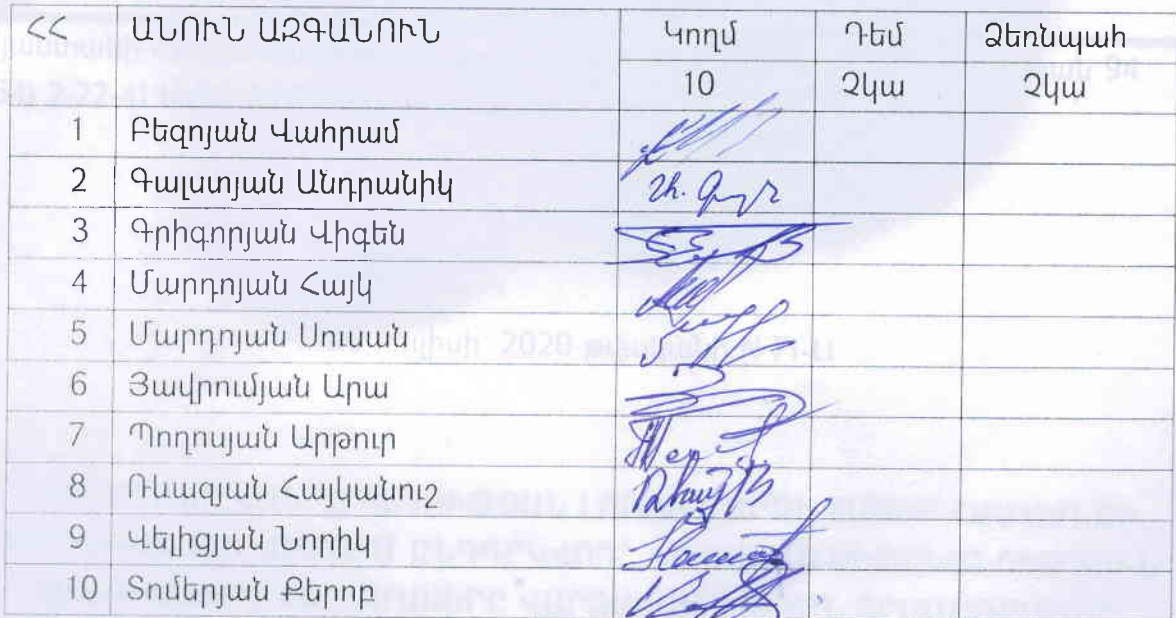 ՀՀ ԱՆՈՒՆ ԱԶԳԱՆՈՒՆ Կողմ Դեմ Ձեռնպահ
10 Չկա Չկա
1 Բեզոյան Վահրամ
2 Գալստյան Անդրանիկ
3 Գրիգորյան Վիգեն
4 Մարդոյան Հայկ
5 Մարդոյան Սուսան
6 Յավրումյան Արա
7 Պողոսյան Արթուր
8 Ռևազյան Հայկանուշ
9 Վելիցյան Նորիկ
10 Տոմերյան Քերոբ